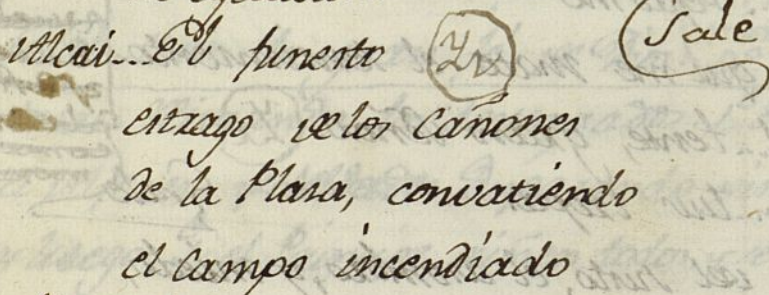 Alcai... El funesto (Sale
estrago de los Cañones
de la Plasa, convatiendo
el Campo incendiado